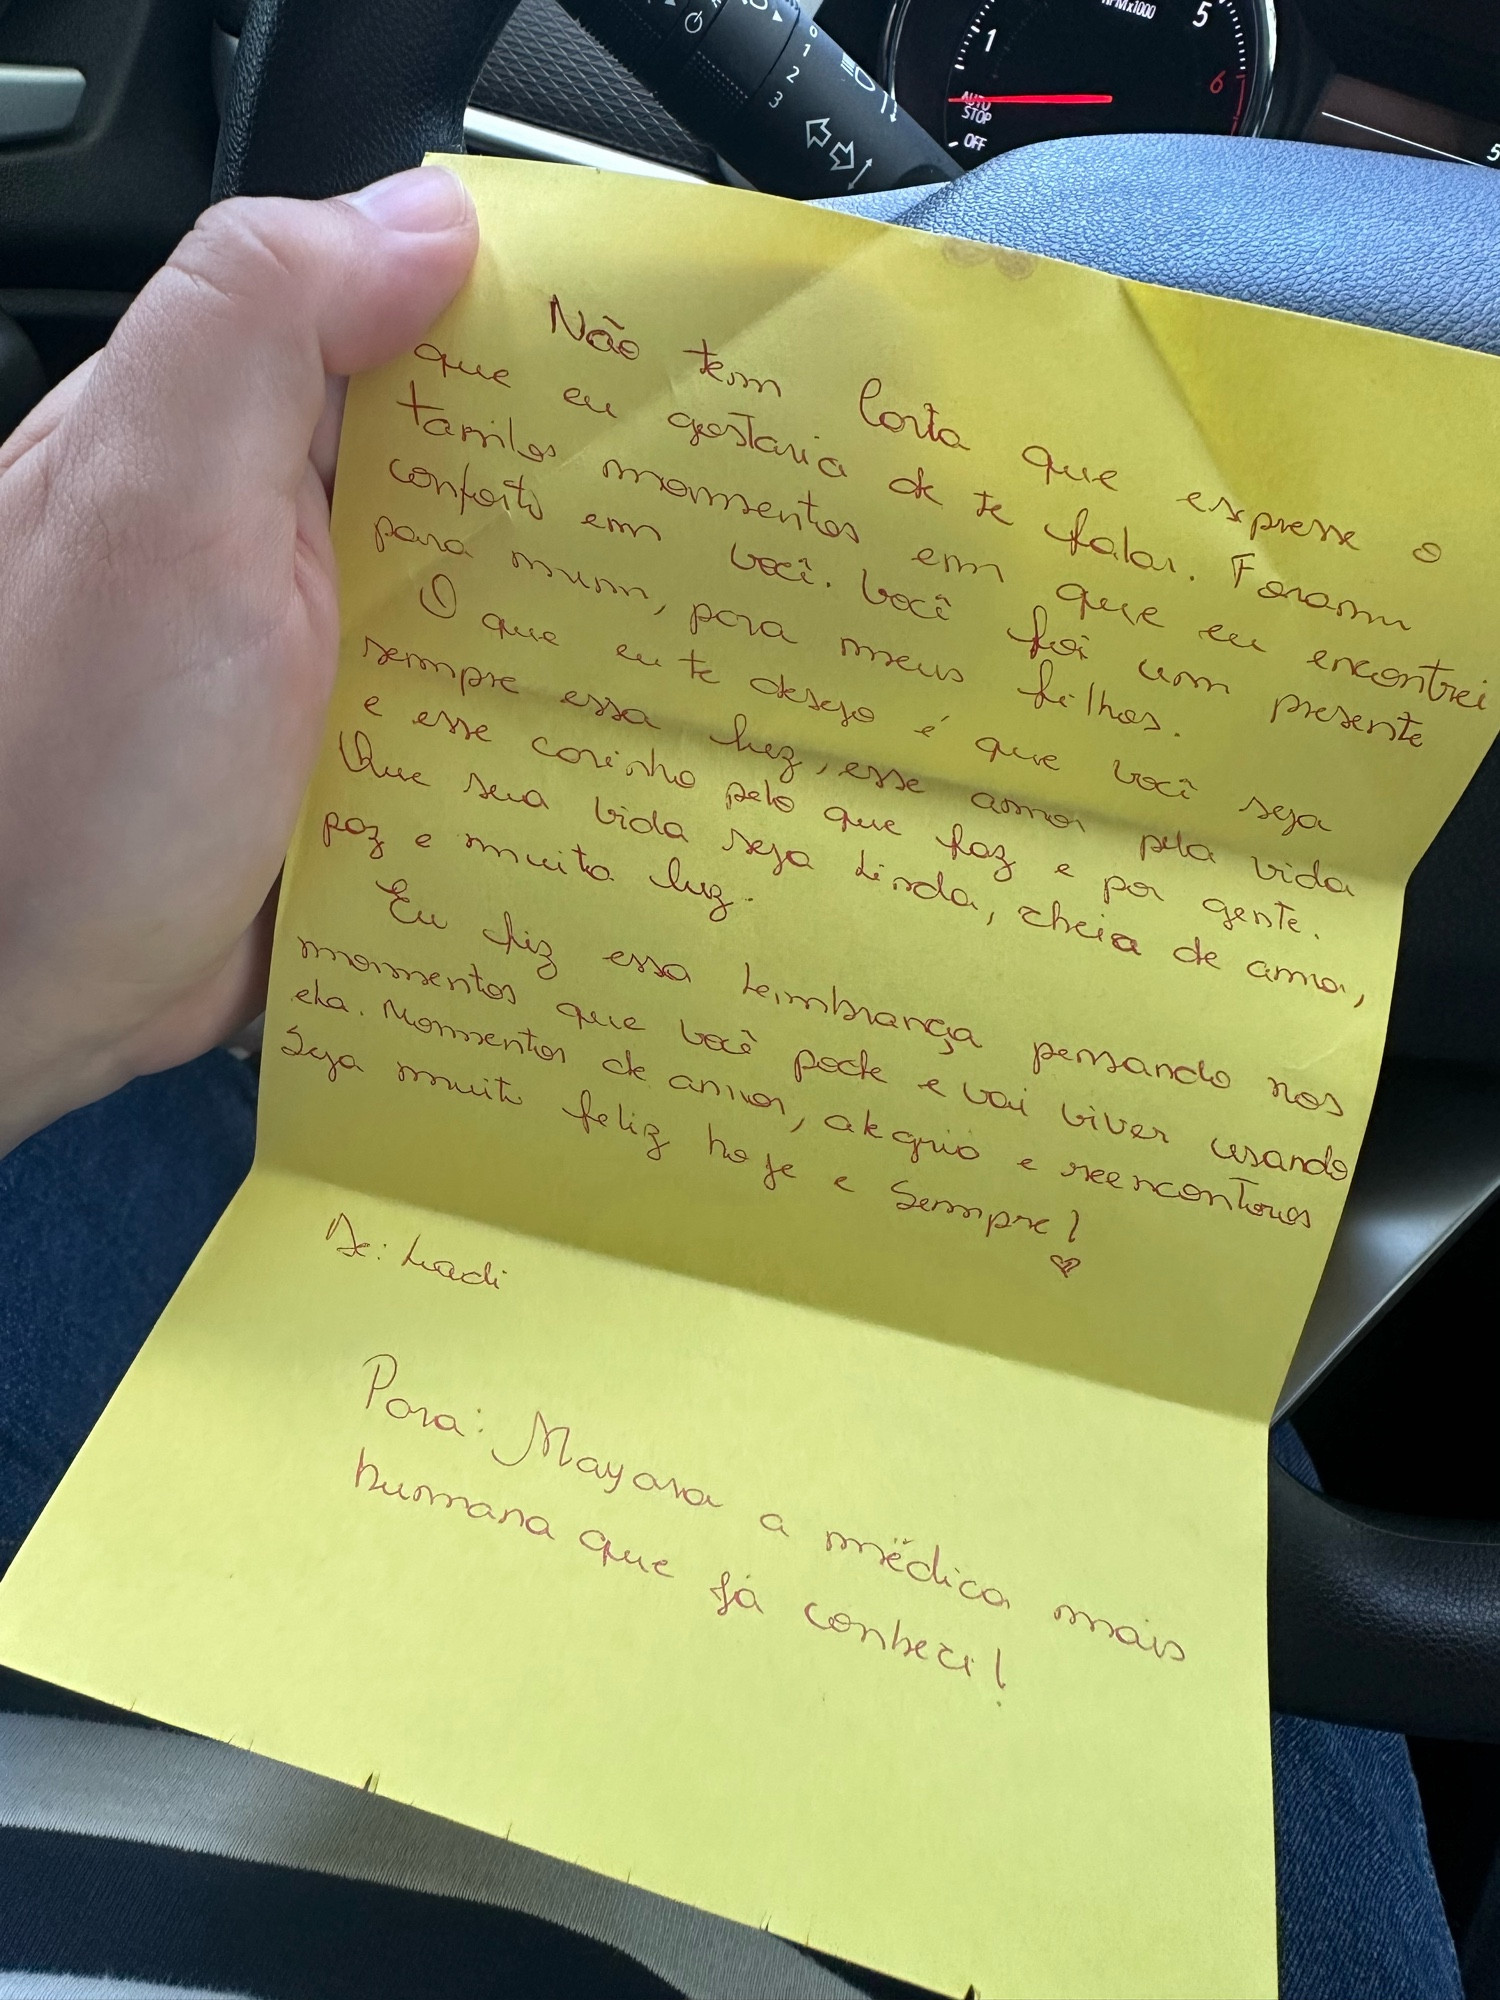 RPMx1000
1
5
6
AUTO
STOP
OFF
5
0
1
2
3
Não tem carta que expresse o
que eu gostaria de te falar. Foram
tantos momentos em que eu encontrei
conforto em você. Você foi um presente
para mim, para meus filhos.
O que eu te desejo é que você seja
sempre essa luz, esse amor pela vida
e esse carinho pelo que faz e por gente.
Que sua vida seja linda, cheia de amor,
paz e muita luz.
Eu fiz essa lembrança pensando nos
momentos que você pode e vai viver usando
ela. Momentos de amor, alegria e reencontros
Seja muito feliz hoje e sempre!
De: Ladi
Para: Mayara a médica mais
humana que já conheci!